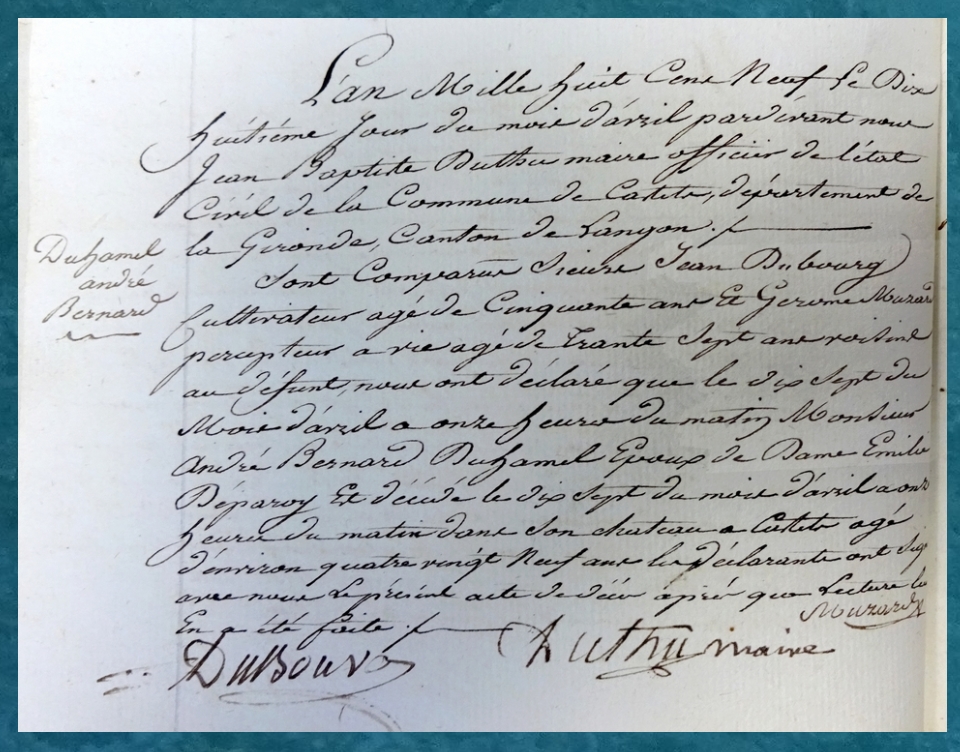 L'an Mille huit Cent Neuf Le Dix
huitiéme Jour du mois d'avril pardevant nous
Jean Baptiste Duthu maire officier de l'état
Civil de la Commune de Castets, département de
la Gironde, Canton de Langon ./.
Duhamel
andré
Bernard
Sont Comparus Sieurs Jean Dubourg
Cultivateur agé de Cinquante ans Et Gerome Muzard
percepteur a vie agé de Trante Sept ans voisins
au défunt, nous ont déclaré que le dix Sept du
Mois d'avril a onze heures du matin Monsieur
André Bernard Duhamel Epoux de Dame Emilie
Déparoy Et décédé le dix Sept du mois d'avril a onze
heures du matin dans Son chateau a Castets agé
d'environ quatre vingt Neuf ans les déclarants ont sig
avec nous Le présent acte de décés aprés que Lecture le
En a été faite ./.
Muzard
DuBourg
Duthu maire